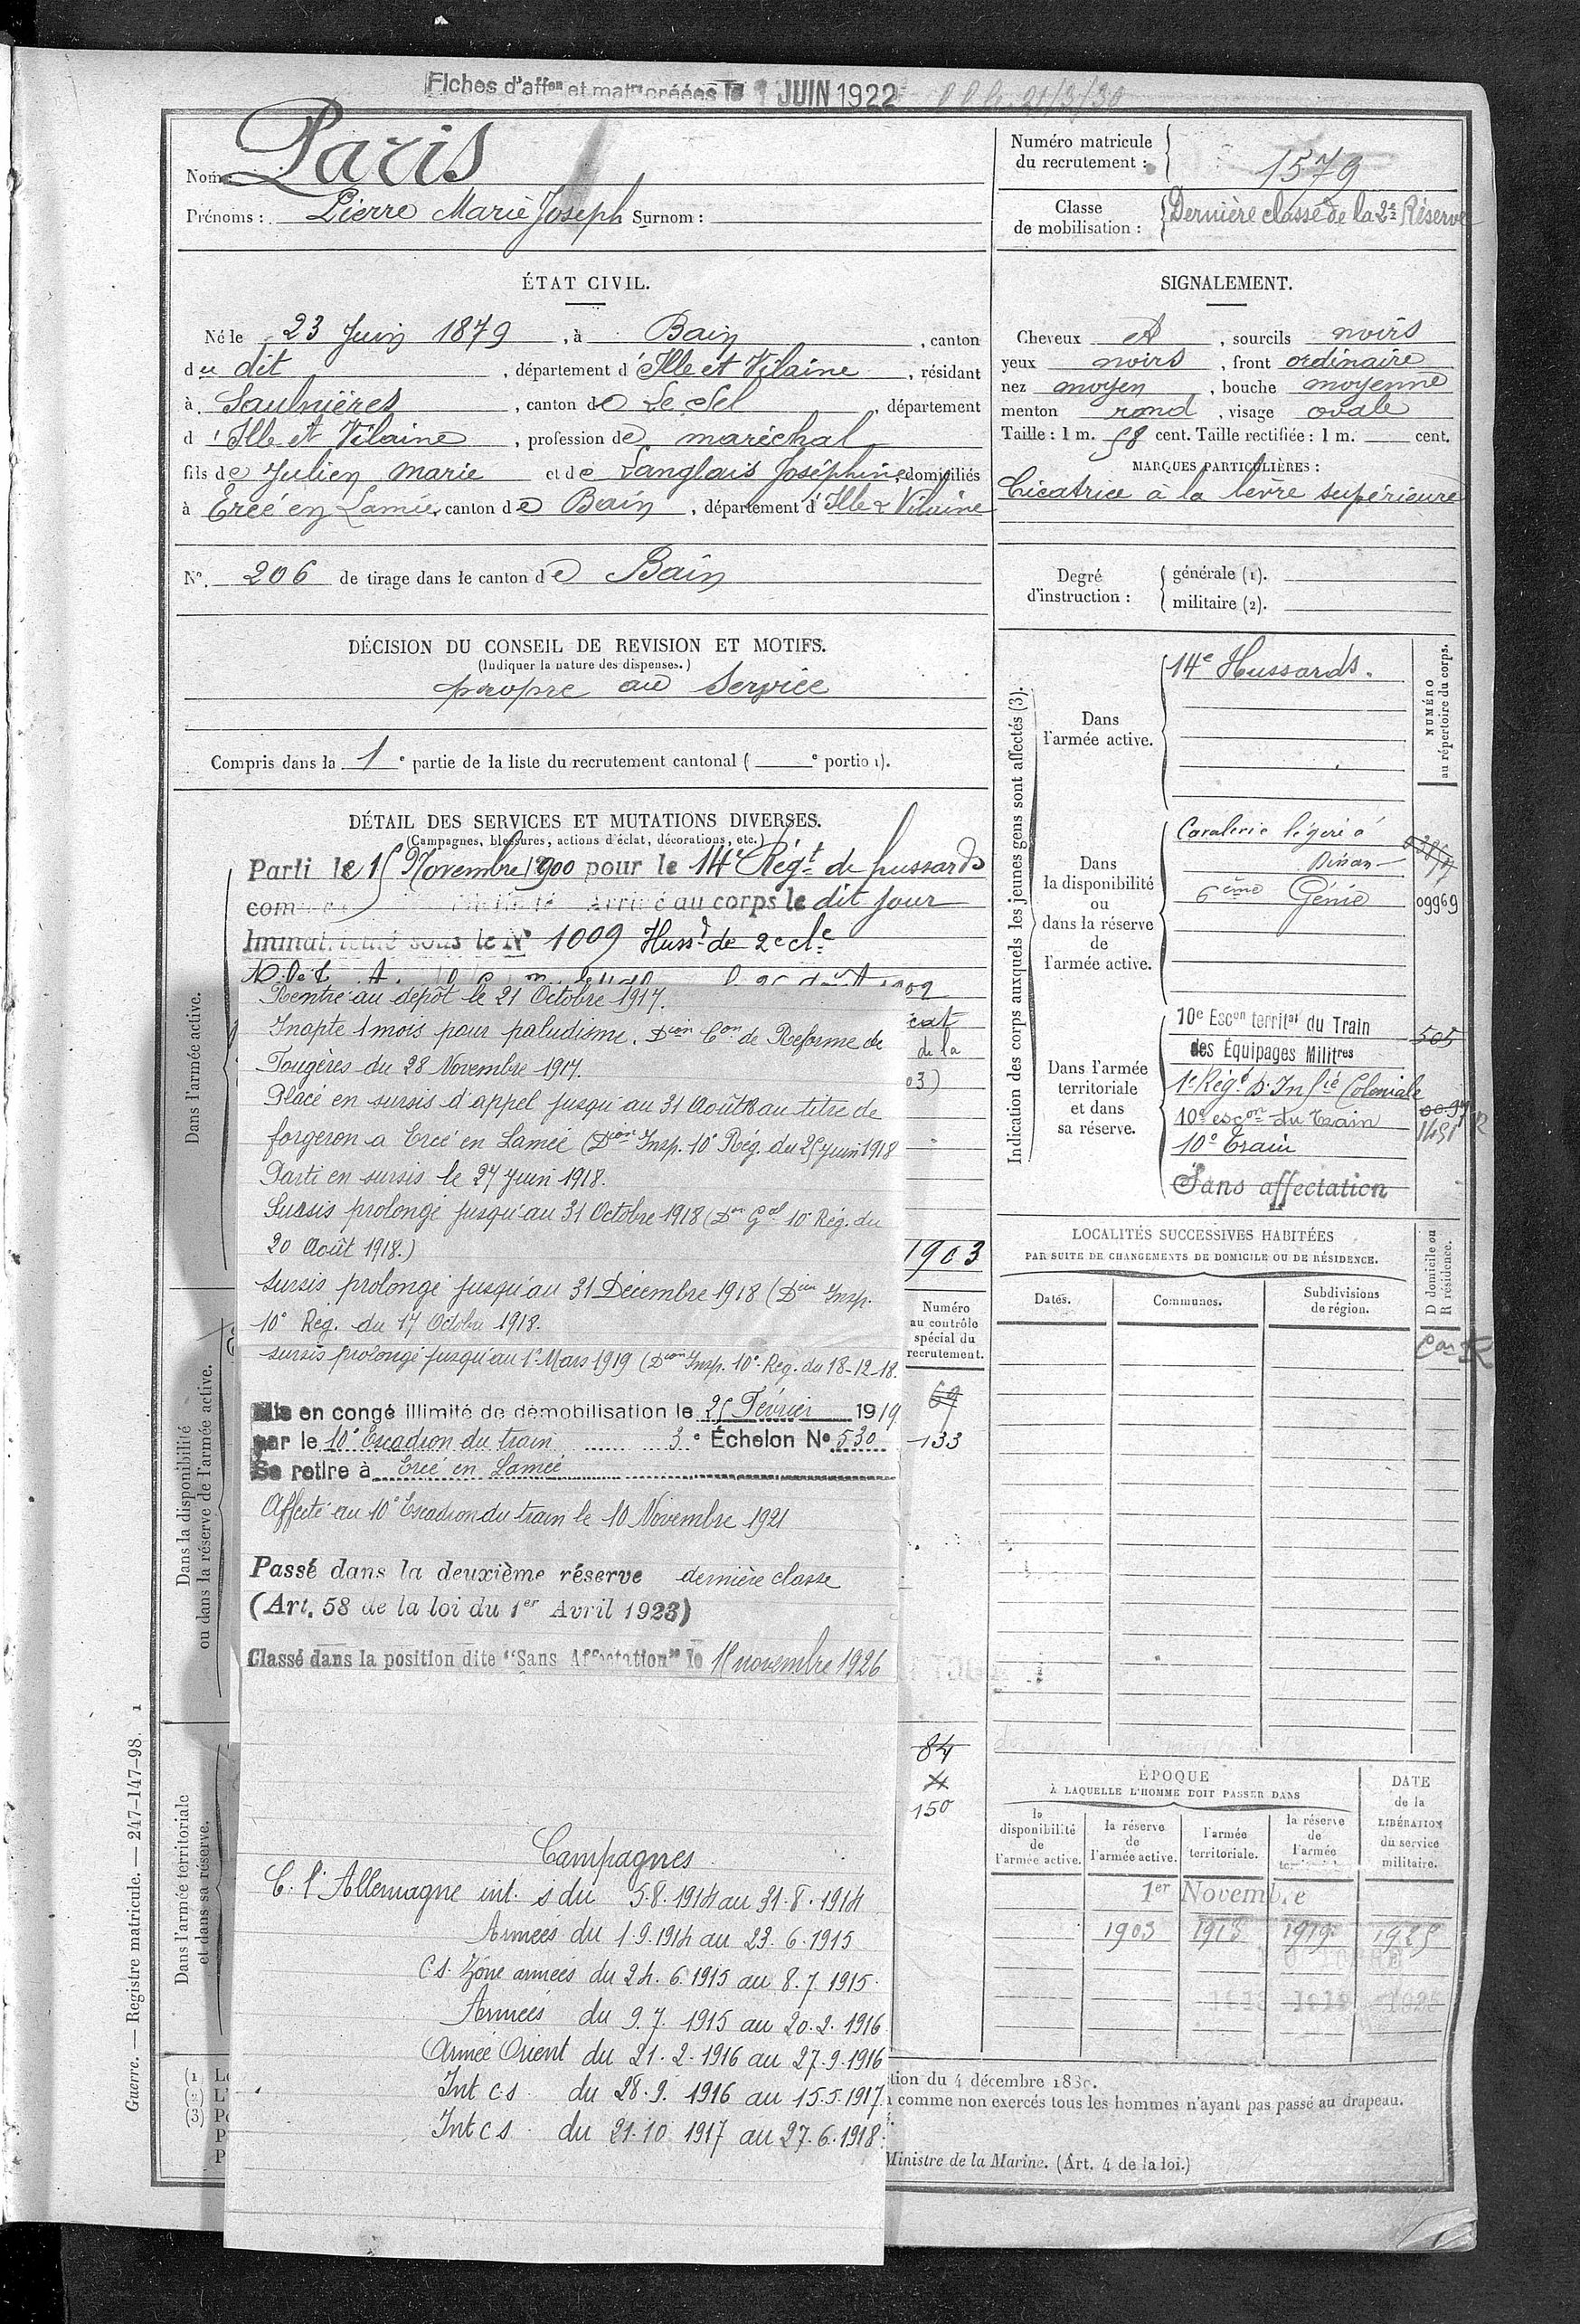 Fiches d'affon et matle créées le 1 JUIN 1922
Nom : Paris
Prénoms : Pierre Marie Joseph Surnom :
Numéro matricule
du recrutement : 1579
Classe
de mobilisation : Dernière classe de la 2e Réserve
ÉTAT CIVIL.
Né le 23 Juin 1879, à Bain, canton
du dit, département d'Ille et Vilaine, résidant
à Saulnières, canton de Le Sel, département
d'Ille et Vilaine, profession de maréchal
fils de Julien Marie et de Langlais Joséphine, domiciliés
à Ercé en Lamée, canton de Bain, département d'Ille & Vilaine
N° 206 de tirage dans le canton de Bain
DÉCISION DU CONSEIL DE REVISION ET MOTIFS.
(Indiquer la nature des dispenses.)
propre au Service
Compris dans la 1e partie de la liste du recrutement cantonal ( e portion).
SIGNALEMENT.
Cheveux et, sourcils noirs
yeux noirs, front ordinaire
nez moyen, bouche moyenne
menton rond, visage ovale
Taille : 1 m. 58 cent. Taille rectifiée : 1 m. cent.
MARQUES PARTICULIÈRES :
Cicatrice à la lèvre supérieure
Degré
d'instruction :
générale (1).
militaire (2).
DÉTAIL DES SERVICES ET MUTATIONS DIVERSES.
(Campagnes, blessures, actions d'éclat, décorations, etc.)
Parti le 15 Novembre 1900 pour le 14e Régt de hussards
Arrivé au corps le dit jour
Immatriculé sous le N° 1009 Hussd de 2e cle
Dans l'armée active.
Rentré au dépôt le 21 Octobre 1917.
Inapte 1 mois pour paludisme. Dion Con de Réforme de
Fougères du 28 Novembre 1917.
Placé en sursis d'appel jusqu'au 31 Août 18 au titre de
forgeron a Ercé en Lamée (Dion Insp. 10e Reg. du 25 juin 1918
Parti en sursis le 27 Juin 1918.
Sursis prolongé jusqu'au 31 Octobre 1918 (Don Gal 10e Rég. du
20 Août 1918.)
sursis prolongé jusqu'au 31 Decembre 1918 (Dion Insp.
10e Reg. du 17 Octobre 1918.
sursis prolongé jusqu'au 1er Mars 1919 (Dion Insp. 10e Reg. du 18-12-18.
Mis en congé illimité de démobilisation le 25 Février 1919
par le 10e Escadron du train 3e Échelon N° 530
Se retire à Ercé en Lamée
Affecté au 10e Escadron du train le 10 Novembre 1921
Passé dans la deuxième réserve dernière classe
(Art. 58 de la loi du 1er Avril 1923)
Classé dans la position dite "Sans Affectation" le 15 novembre 1926
Campagnes
C. l'Allemagne int. s du 5.8.1914 au 31.8.1914
Armées du 1.9.1914 au 23.6.1915
C.S. Zône armées du 24.6.1915 au 8.7.1915.
Armées du 9.7.1915 au 20.2.1916
Armée Orient du 21.2.1916 au 27.9.1916
Int c.s du 28.9.1916 au 15.5.1917.
Int c s du 21.10 1917 au 27.6.1918.
cat
de la
03)
1903
Numéro
au contrôle
spécial du
recrutement.
69
133
84
150
Dans la disponibilité
ou dans la réserve de l'armée active.
Dans l'armée territoriale
et dans sa réserve.
Indication des corps auxquels les jeunes gens sont affectés (3).
NUMÉRO
au répertoire du corps.
Dans
l'armée active.
14e Hussards.
Dans
la disponibilité
ou
dans la réserve
de
l'armée active.
Cavalerie légère à
Dinan
6ème Génie 09969
Dans l'armée
territoriale
et dans
sa réserve.
10e Escon territal du Train
des Équipages Militres 505
1er Régt d'Infie Coloniale
10e escon du Train
10e Train
Sans affectation
LOCALITÉS SUCCESSIVES HABITÉES
PAR SUITE DE CHANGEMENTS DE DOMICILE OU DE RÉSIDENCE.
Dates.
Communes.
Subdivisions
de région.
D domicile ou
R résidence.
ÉPOQUE
À LAQUELLE L'HOMME DOIT PASSER DANS
la
disponibilité
de
l'armée active.
la réserve
de
l'armée active.
l'armée
territoriale.
la réserve
de
l'armée
DATE
de la
LIBÉRATION
du service
militaire.
1er Novembre
1903 1913 1919 1925
tion du 4 décembre 1889.
comme non exercés tous les hommes n'ayant pas passé au drapeau.
Ministre de la Marine. (Art. 4 de la loi.)
Guerre. — Registre matricule. — 247-147-98. 1